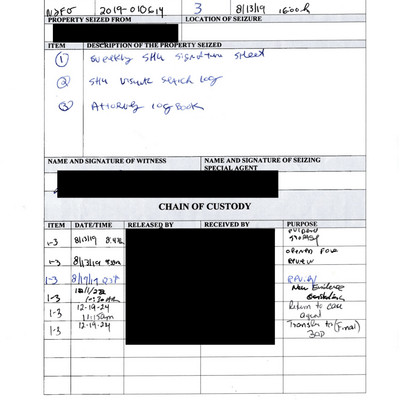 2019-010614 3 8/13/19 1600h
PROPERTY SEIZED FROM LOCATION OF SEIZURE
ITEM DESCRIPTION OF THE PROPERTY SEIZED
① SHU signature sheet
② SHU Visual search log
③ Attorney log book
NAME AND SIGNATURE OF WITNESS NAME AND SIGNATURE OF SEIZING
SPECIAL AGENT
CHAIN OF CUSTODY
ITEM DATE/TIME RELEASED BY RECEIVED BY PURPOSE
evidence
1-3 8/13/19 storage
opened for
1-3 8/13/19 review
1-3 review
New Evidence
1-3 Custodian
12-19-24 Return to case
1-3 11:15am agent
1-3 12-19-24 Transfer to (Final)